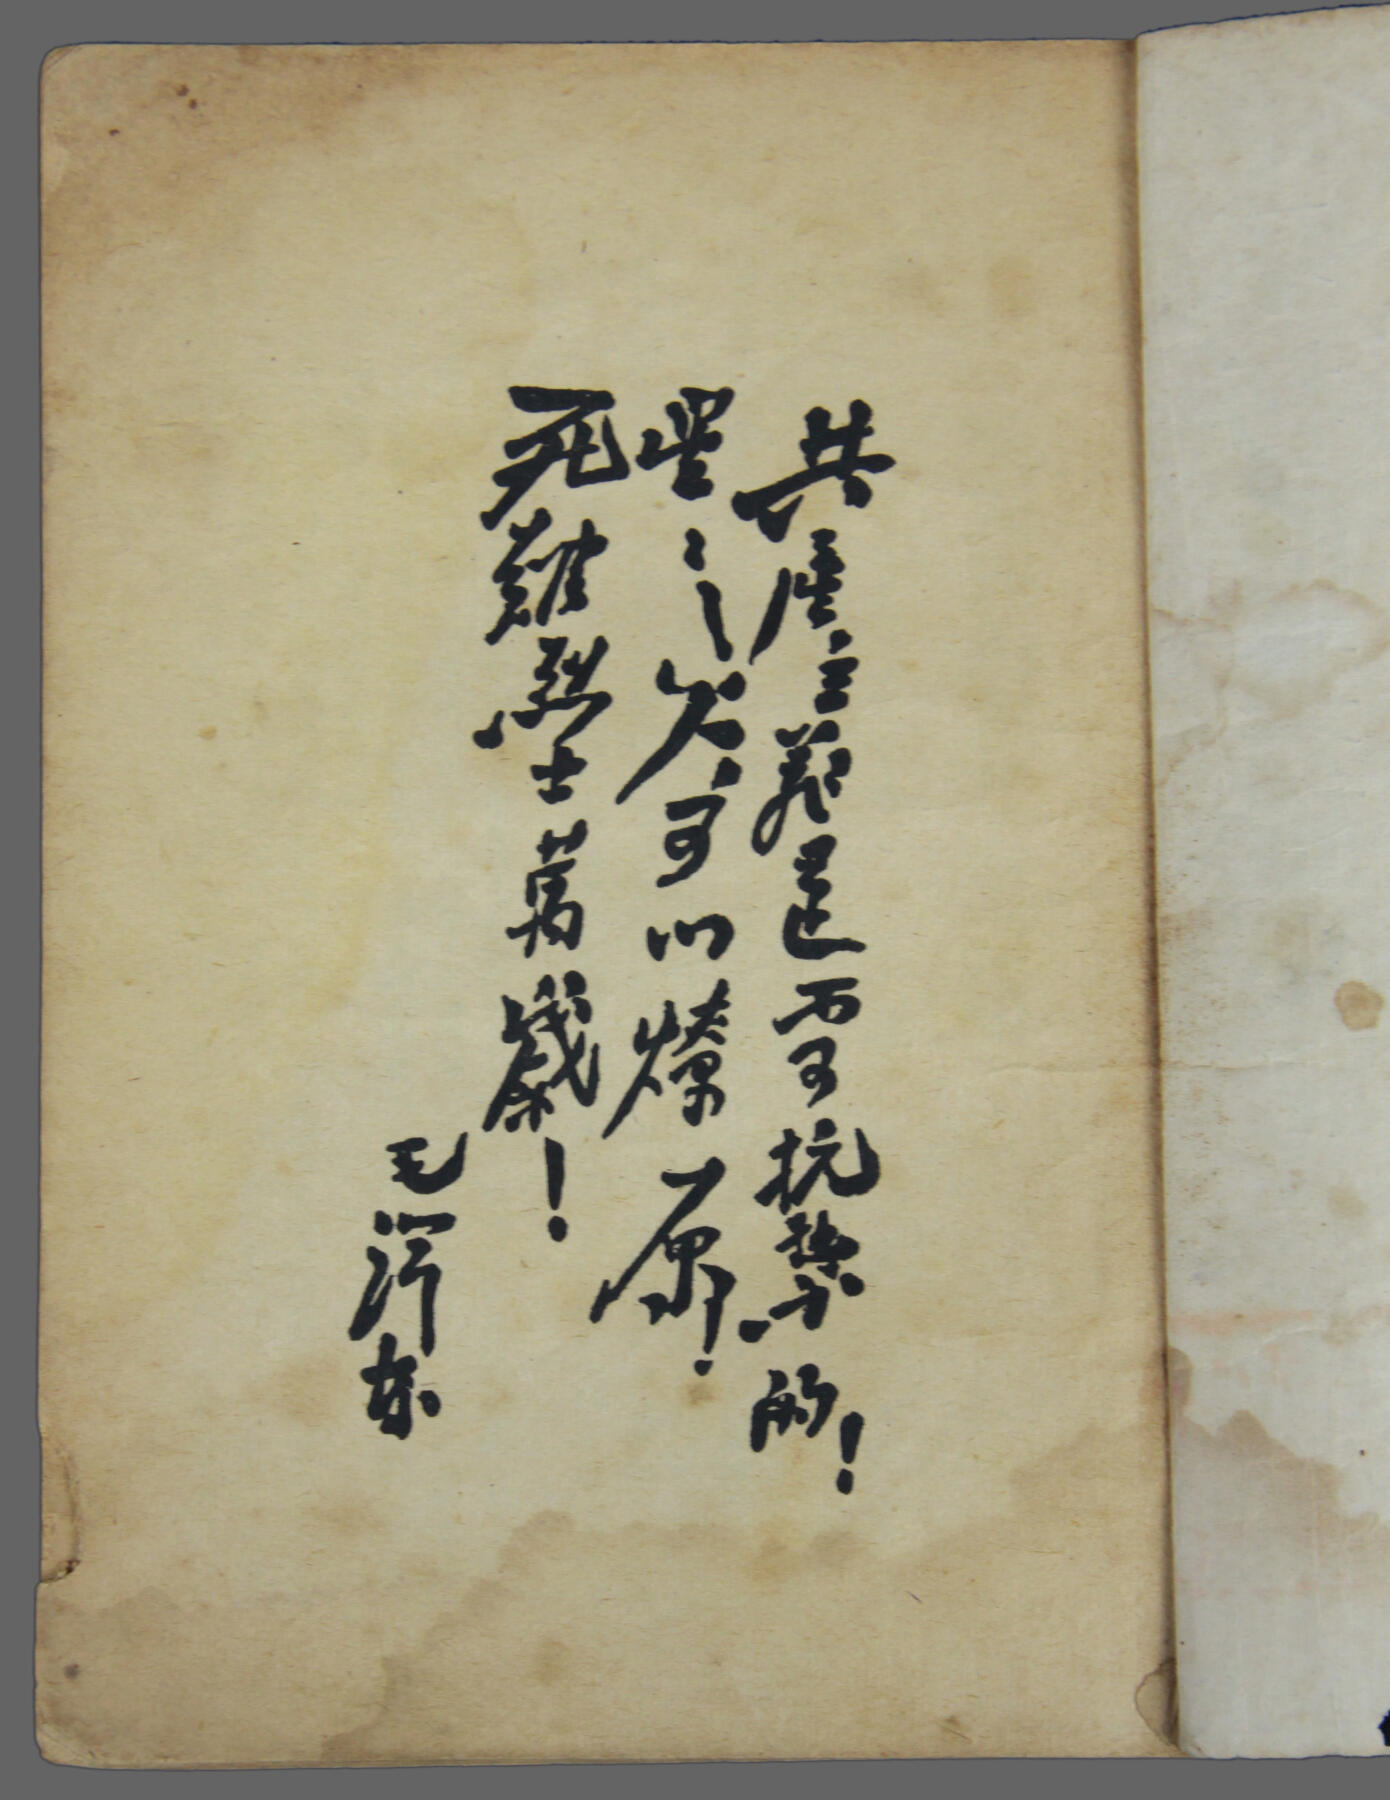 共産主義是不可抗禦的！
星々之火可以燎原！
死難烈士萬歲！
毛澤东